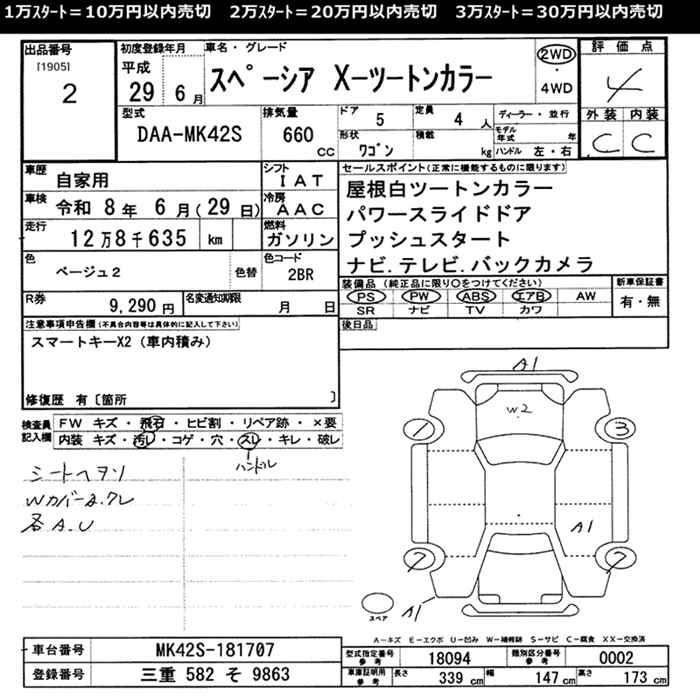 1万ｽﾀｰﾄ＝10万円以内売切　2万ｽﾀｰﾄ＝20万円以内売切　3万ｽﾀｰﾄ＝30万円以内売切
出品番号
[1905]
2
初度登録年月
平成
29 6月
車名・グレード
スペーシア X-ツートンカラー
2WD
・
4WD
評価点
4
外装 内装
C C
型式
DAA-MK42S
排気量
660
CC
ドア 5
定員 4 人
形状 ﾜｺﾞﾝ
積載 kg
ディーラー・並行
モデル年式 年
ハンドル 左・右
車歴 自家用
車検 令和 8年 6月(29日)
走行 12万8千635 km
シフト IAT
冷房 AAC
燃料 ガソリン
色 ベージュ2 色替
色コード 2BR
R券 9,290円
名変通知期限 月 日
セールスポイント(正常に機能するものに限ります)
屋根白ツートンカラー
パワースライドドア
プッシュスタート
ナビ.テレビ.バックカメラ
装備品(純正品に限り○をつけてください)
PS PW ABS エアB AW
SR ナビ TV カワ
新車保証書
有・無
後日品
注意事項申告欄(不具合内容等は具体的に記入して下さい)
スマートキーX2(車内積み)
修復歴 有〔箇所 〕
検査員記入欄
FW キズ・飛石・ヒビ割・リペア跡・×要
内装 キズ・汚レ・コゲ・穴・スレ・キレ・破レ
ハンドル
シートヘタリ
Wカバーa.クレ
各A.U
A1
W2
1 3
A1
7 7
A1
スペア
A-キズ E-エクボ U-凹み W-補修跡 S-サビ C-腐食 XX-交換済
車台番号 MK42S-181707
登録番号 三重 582 そ 9863
型式指定番号 参考 18094
類別区分番号 参考 0002
車庫証明用 参考 長さ 339 cm 幅 147 cm 高さ 173 cm